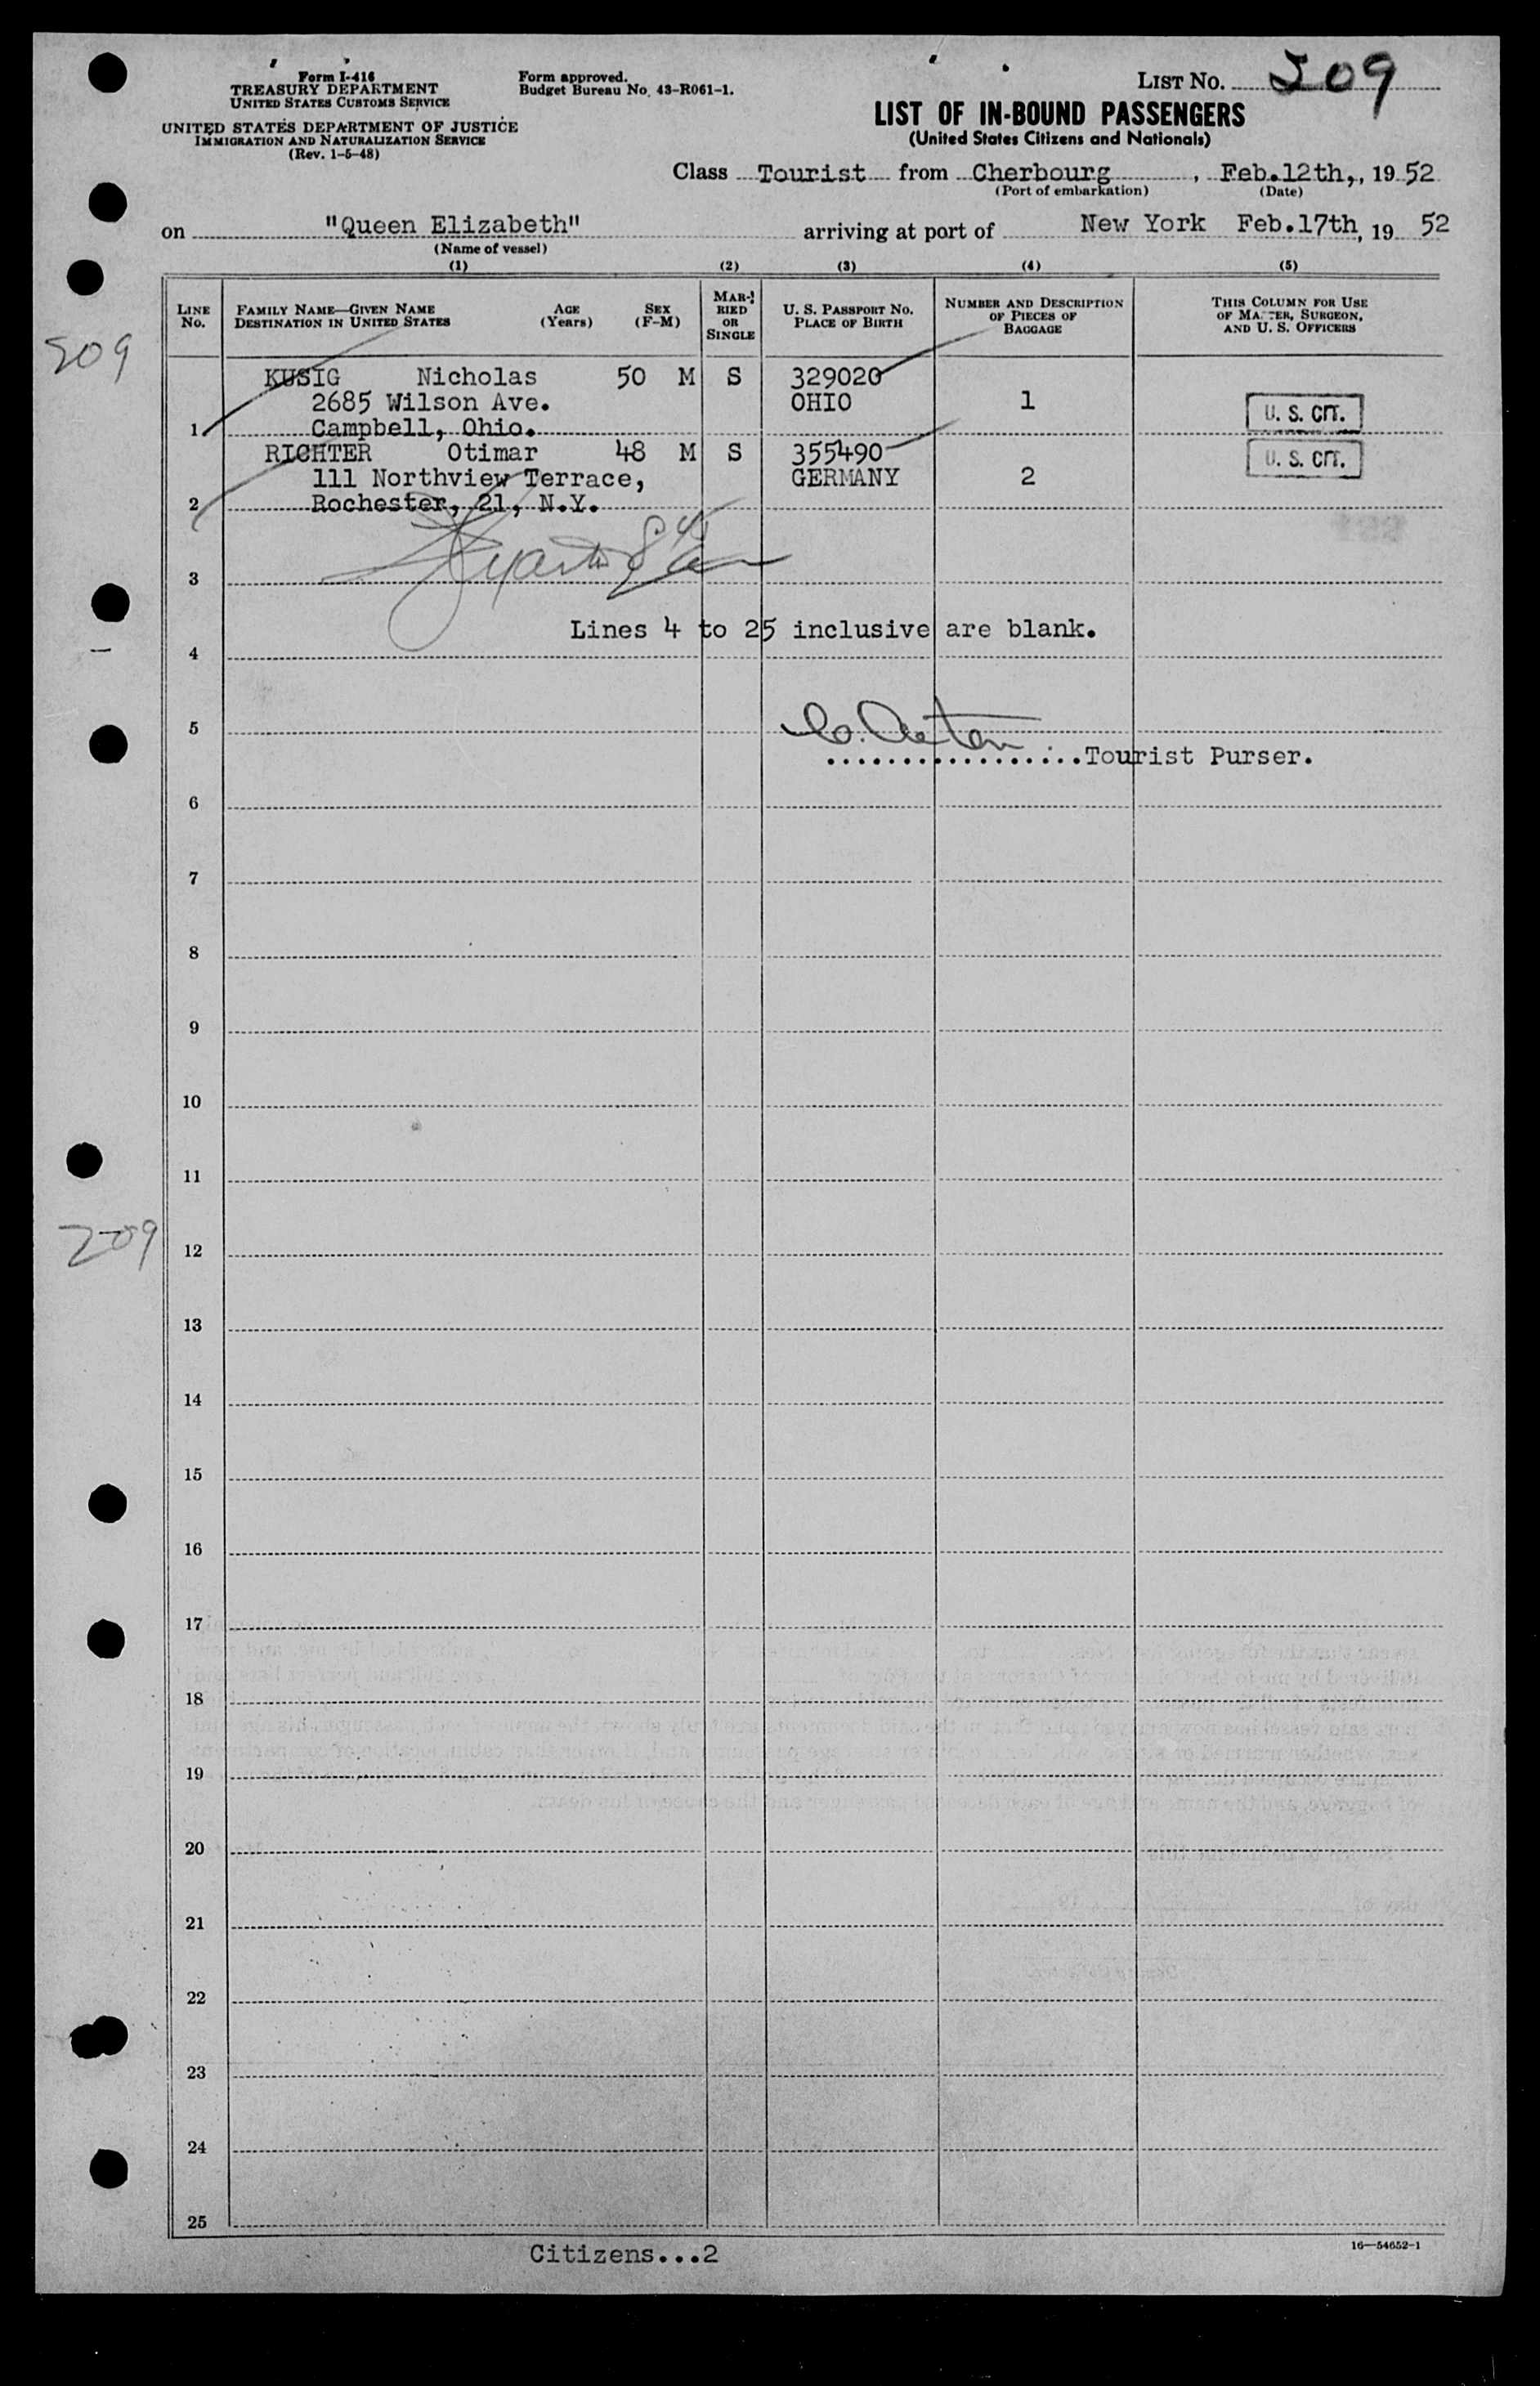 Form I-416
TREASURY DEPARTMENT
UNITED STATES CUSTOMS SERVICE
UNITED STATES DEPARTMENT OF JUSTICE
IMMIGRATION AND NATURALIZATION SERVICE
(Rev. 1-5-48)
Form approved.
Budget Bureau No. 43-R061-1.
LIST NO. 209
LIST OF IN-BOUND PASSENGERS
(United States Citizens and Nationals)
Class Tourist from Cherbourg, Feb.12th,, 1952
(Port of embarkation) (Date)
on "Queen Elizabeth" arriving at port of New York Feb.17th, 1952
(Name of vessel)
(1) (2) (3) (4) (5)
LINE NO. FAMILY NAME—GIVEN NAME DESTINATION IN UNITED STATES AGE (Years) SEX (F-M) MARRIED OR SINGLE U. S. PASSPORT NO. PLACE OF BIRTH NUMBER AND DESCRIPTION OF PIECES OF BAGGAGE THIS COLUMN FOR USE OF MASTER, SURGEON, AND U. S. OFFICERS
209
KUSIG Nicholas 50 M S 329020
2685 Wilson Ave. OHIO 1 U. S. CIT.
1 Campbell, Ohio.
RICHTER Otimar 48 M S 355490 U. S. CIT.
111 Northview Terrace, GERMANY 2
2 Rochester, 21, N.Y.
3
Lines 4 to 25 inclusive are blank.
4
5
Tourist Purser.
6
7
8
9
10
11
209
12
13
14
15
16
17
18
19
20
21
22
23
24
25
Citizens...2
16—54652-1